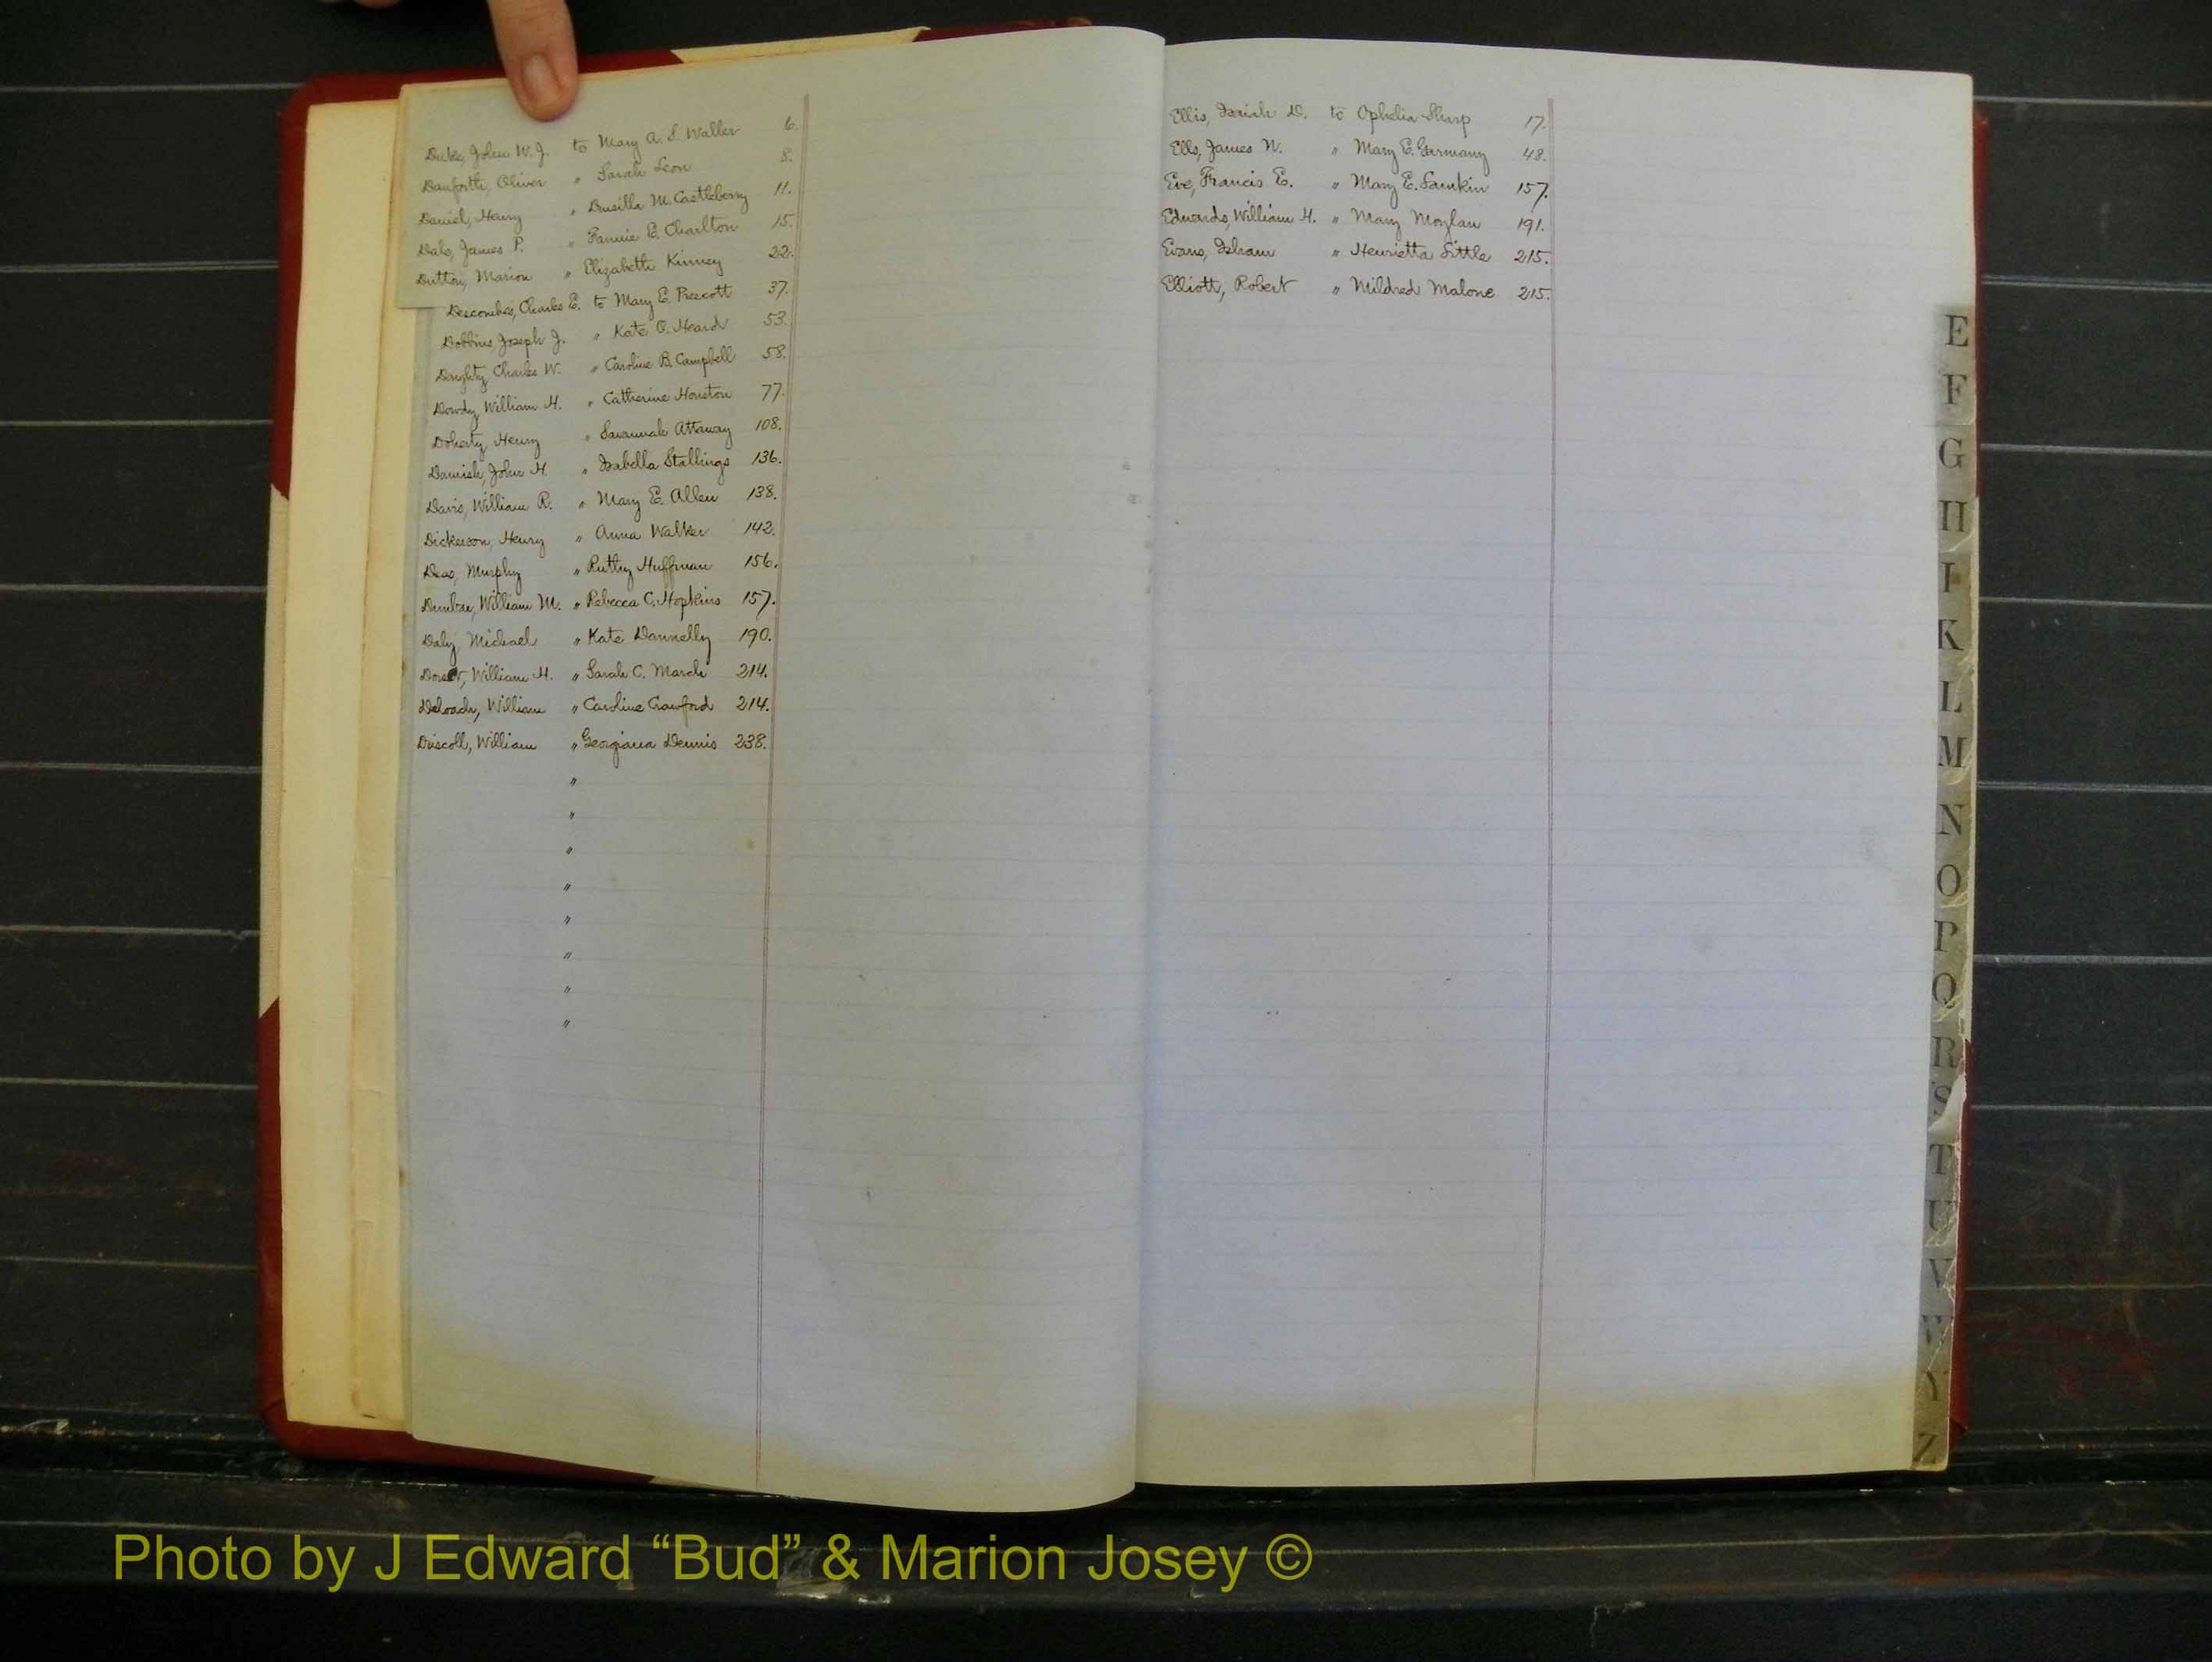 Duke, John W. J. to Mary A. S. Waller 6.
Danforth, Oliver " Sarah Leon 8.
Daniel, Henry " Drusilla M. Castleberry 11.
Dale, James P. " Fannie E. Charlton 15.
Dutton, Marion " Elizabeth Kinney 22.
Descombes, Charles E. to Mary E. Prescott 37.
Dobbins, Joseph J. " Kate O. Heard 53.
Doughty, Charles W. " Caroline B. Campbell 58.
Dowdy, William H. " Catherine Houston 77.
Doherty, Henry " Savannah Attaway 108.
Damish, John H. " Isabella Stallings 136.
Davis, William R. " Mary E. Allen 138.
Dickerson, Henry " Anna Walker 142.
Deas, Murphy " Ruthy Huffman 156.
William M. " Rebecca C. Hopkins 157.
Daly, Michael " Kate Dannelly 190.
William H. " Sarah C. March 214.
Deloach, William " Caroline Crawford 214.
Driscoll, William " Georgiana Dennis 238.
"
"
"
"
"
"
"
"
Ellis, Isaiah D. to Ophelia Sharp 17.
Ells, James N. " Mary E. Germany 48.
Eve, Francis E. " Mary E. Lamkin 157.
Edwards, William H. " Mary Moylan 191.
Evans, Isham " Henrietta Little 215.
Elliott, Robert " Mildred Malone 215.
E
F
G
H
I
K
L
M
N
O
P
Q
R
S
T
U
V
W
Y
Z
Photo by J Edward “Bud” & Marion Josey ©